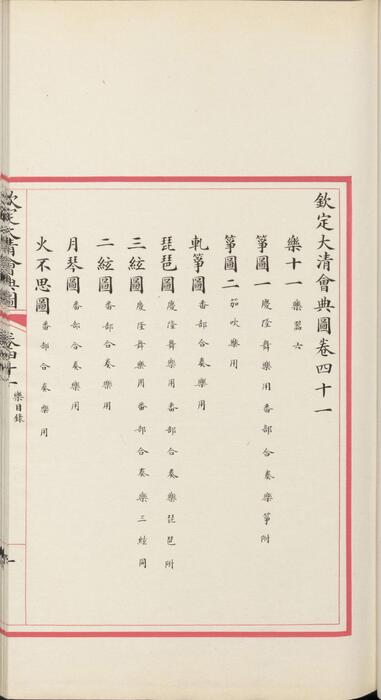 欽定大清會典圖卷四十一
樂十一 樂器六
箏圖一 慶隆舞樂用番部合奏樂箏附
箏圖二 笳吹樂用
軋箏圖 番部合奏樂用
琵琶圖 慶隆舞樂用番部合奏樂琵琶附
三絃圖 慶隆舞樂用番部合奏樂三絃同
二絃圖 番部合奏樂用
月琴圖 番部合奏樂用
火不思圖 番部合奏樂用
欽定大清會典圖 卷四十一 樂目錄 一